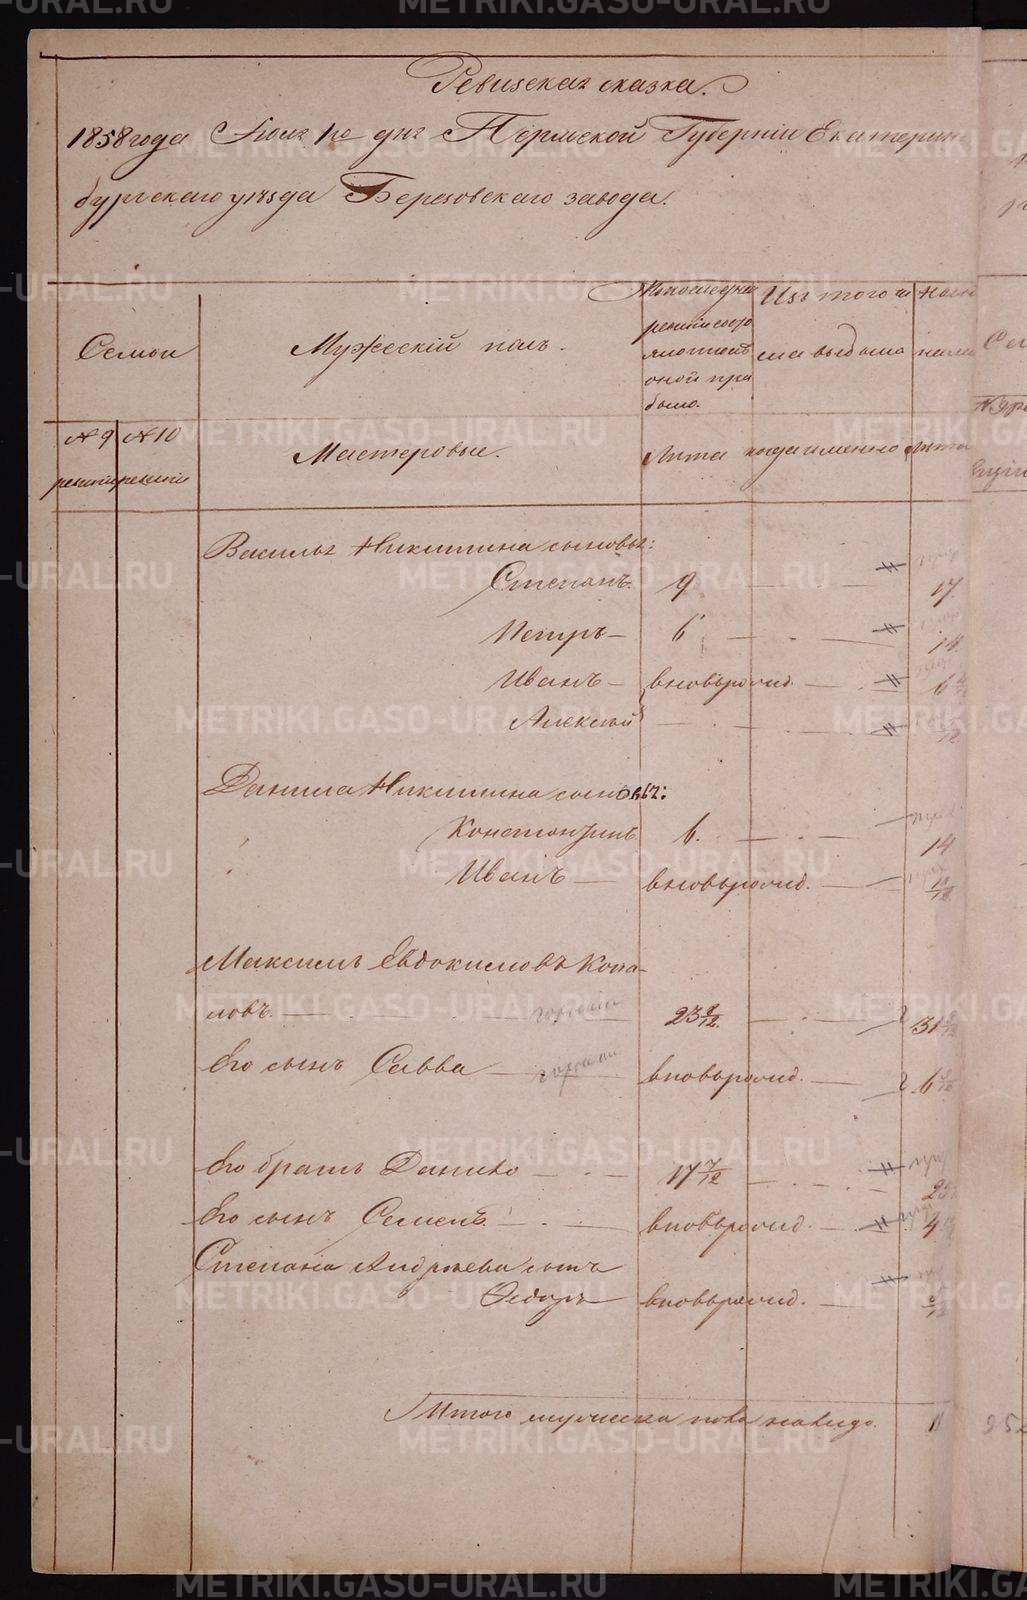 Ревизская сказка.
1858 года Июля 1го дня Пермской Губерніи Екатерин
бургскаго уѣзда Березовскаго завода.
Семьи
Мужескій полъ.
По последней
ревизіи состо
яло и послѣ
оной при
было.
Изъ того чи
сла выбыло
Ныне
на ли
№ 9 ревизіи
№ 10 ревизіи
Мастеровые.
Лѣта
когда именно
Лѣта
Василья Никитина сыновья:
Степанъ. 9 17
Петръ 6
Иванъ вновьрожд. 6
Алексѣй
Данила Никитина сыновья:
Константинъ 6. 14
Иванъ вновьрожд. 10/12
Максимъ Евдокимовъ Копа-
ловъ. 23 8/12. 31
Его сынъ Савва вновьрожд. 6
Его братъ Данило 17 7/12 25
Его сынъ Семенъ вновьрожд. 4
Степана Андрѣева сынъ
Федоръ вновьрожд. 10/12
Итого мужеска пола на лицо. 11
METRIKI.GASO-URAL.RU